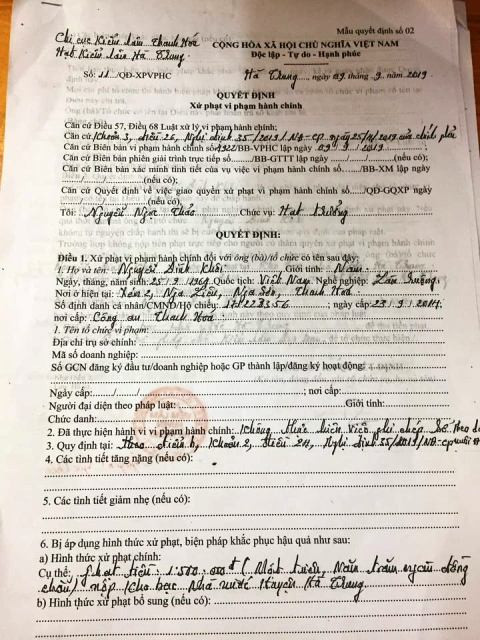 Mẫu quyết định số 02
Chi cục Kiểm lâm Thanh Hoá
CỘNG HÒA XÃ HỘI CHỦ NGHĨA VIỆT NAM
Hạt Kiểm lâm Hà Trung
Độc lập - Tự do - Hạnh phúc
Số: 11/QĐ-XPVPHC
Hà Trung, ngày 09 tháng 9 năm 2019
QUYẾT ĐỊNH
Xử phạt vi phạm hành chính
Căn cứ Điều 57, Điều 68 Luật xử lý vi phạm hành chính;
Căn cứ Khoản 3, Điều 26, Nghị định 35/2019/NĐ-CP ngày 25/4/2019 của chính phủ
Căn cứ Biên bản vi phạm hành chính số /BB-VPHC lập ngày 09/9/2019
Căn cứ Biên bản phiên giải trình trực tiếp số....../BB-GTTT lập ngày ...../...../........(nếu có);
Căn cứ Biên bản xác minh tình tiết của vụ việc vi phạm hành chính số......./BB-XM lập ngày
...../...../........(nếu có);
Căn cứ Quyết định về việc giao quyền xử phạt vi phạm hành chính số...../QĐ-GQXP ngày
...../...../........(nếu có);
Tôi: Nguyễn Ngọc Thảo Chức vụ: Hạt trưởng
QUYẾT ĐỊNH:
Điều 1. Xử phạt vi phạm hành chính đối với ông (bà)/tổ chức có tên sau đây:
1. Họ và tên: Nguyễn Đình Khôi Giới tính: Nam
Ngày, tháng, năm sinh: 25/9/1969 Quốc tịch: Việt Nam Nghề nghiệp: Làm ruộng
Nơi ở hiện tại: Xóm 2, Nga Liên, Nga Sơn, Thanh Hoá
Số định danh cá nhân/CMND/Hộ chiếu: ; ngày cấp: 23/9/
nơi cấp: Công an Thanh Hoá
1. Tên tổ chức vi phạm:
Địa chỉ trụ sở chính:
Mã số doanh nghiệp:
Số GCN đăng ký đầu tư/doanh nghiệp hoặc GP thành lập/đăng ký hoạt động:
Ngày cấp:...../...../........; nơi cấp:
Người đại diện theo pháp luật: Giới tính:
Chức danh:
2. Đã thực hiện hành vi vi phạm hành chính: Không thực hiện việc ghi chép sổ theo
3. Quy định tại: Theo điểm b, Khoản 2, Điều 24, Nghị định 35/2019/NĐ-CP
4. Các tình tiết tăng nặng (nếu có):
5. Các tình tiết giảm nhẹ (nếu có):
6. Bị áp dụng hình thức xử phạt, biện pháp khắc phục hậu quả như sau:
a) Hình thức xử phạt chính:
Cụ thể: phạt tiền: 1.500.000đ (Một triệu, năm trăm ngàn đồng
chẵn) nộp kho bạc Nhà nước Huyện Hà Trung
b) Hình thức xử phạt bổ sung (nếu có):